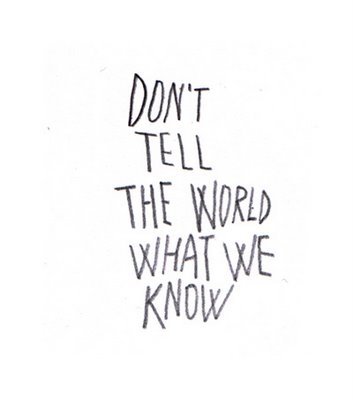 DON'T
TELL
THE WORLD
WHAT WE
KNOW